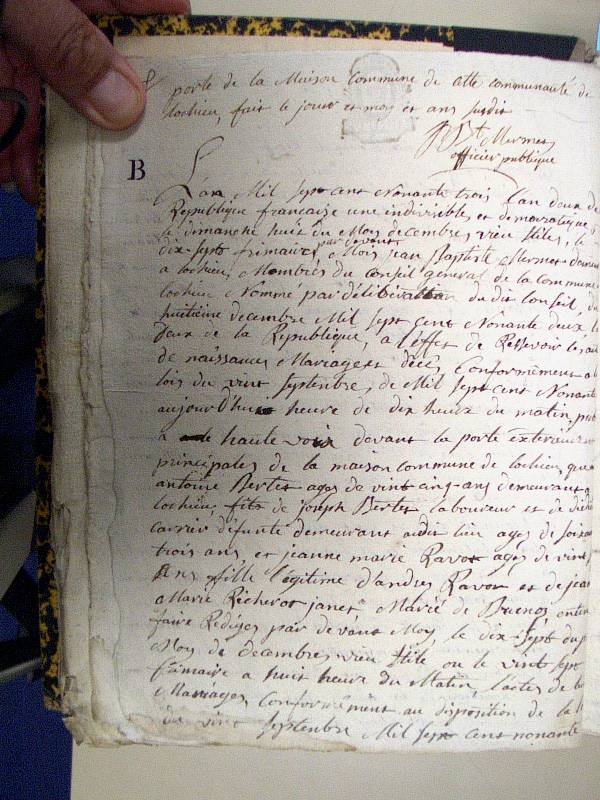 porte de la Maison Commune de cette communauté de
Lochieu, fait le jour et moy et ans susdit
J Bt Mermet
officier publique
B
L'an Mil sept cent Nonante trois l'an deux de
République française une indivisible, et démocratique,
le dimanche huit du Mois decembres, vieu stiles, le
dix-sept frimaire, par devant Mois jean Baptiste Mermet demeu
a lochieu, Membres du Conseil général de la Commune
lochieu Nommé par délibération du dit Conseil, du
huitieme decembre Mil sept cent Nonante deux l
deux de la Republique, a l'effet de Ressevoir les ac
de naissances Mariages et décé, Conformément a
lois du vint septembre, de Mil sept cent Nonante
aujourd'hui heure de dix heure du matin,
a haute voix devant la porte exterieure
principales de la maison commune de lochieu, que
antoine Bertet ages de vint cinq ans demeurant a
lochieu, fils de joseph Bertet laboureur et de
carrier défunte demeurant audit lieu ages de soixan
trois ans, et jeanne marie Ravot ages de vint
Ans fille légitime d'andre Ravot et de jean
Marie Richerot janet Marié de Buenos
faire Rediges par devant Moy, le dix-sept du p
Moy de decembres vieu stile ou le vint sept
frimaire a huit heure du Matin, l'actes de leur
Mariages, Conformément au disposition de la l
du vint septembre Mil sept cent nonante